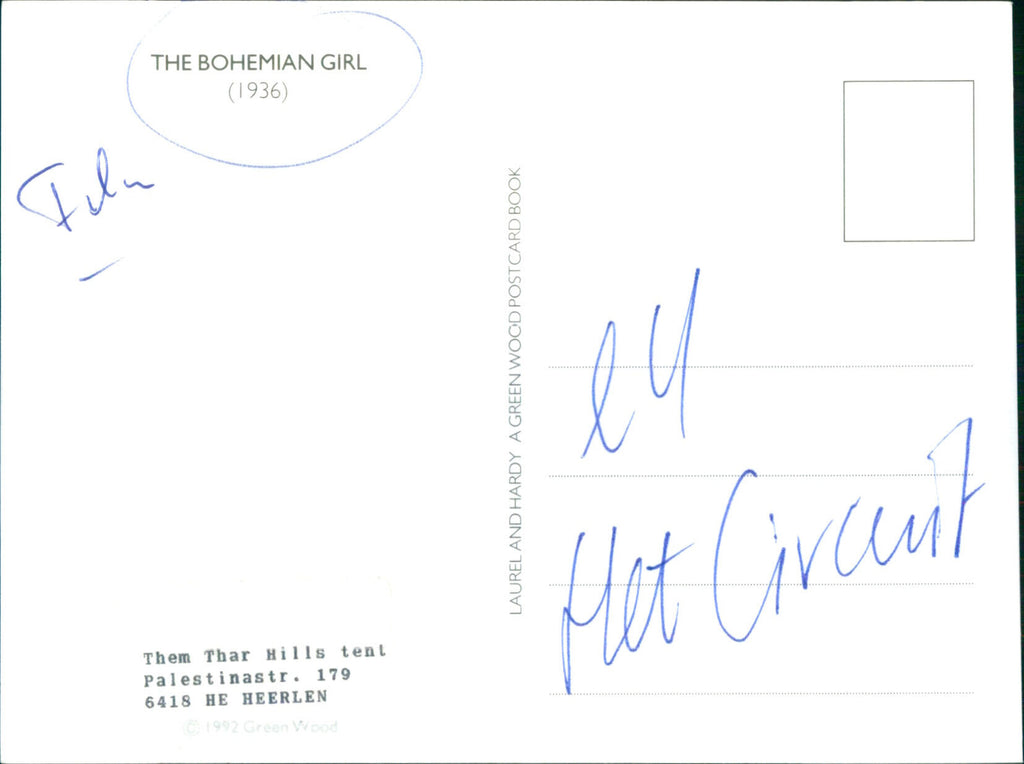 THE BOHEMIAN GIRL
(1936)
Film
LAUREL AND HARDY A GREEN WOOD POSTCARD BOOK
Het Circuit
Them Thar Hills tent
Palestinastr. 179
6418 HE HEERLEN
© 1992 Green Wood